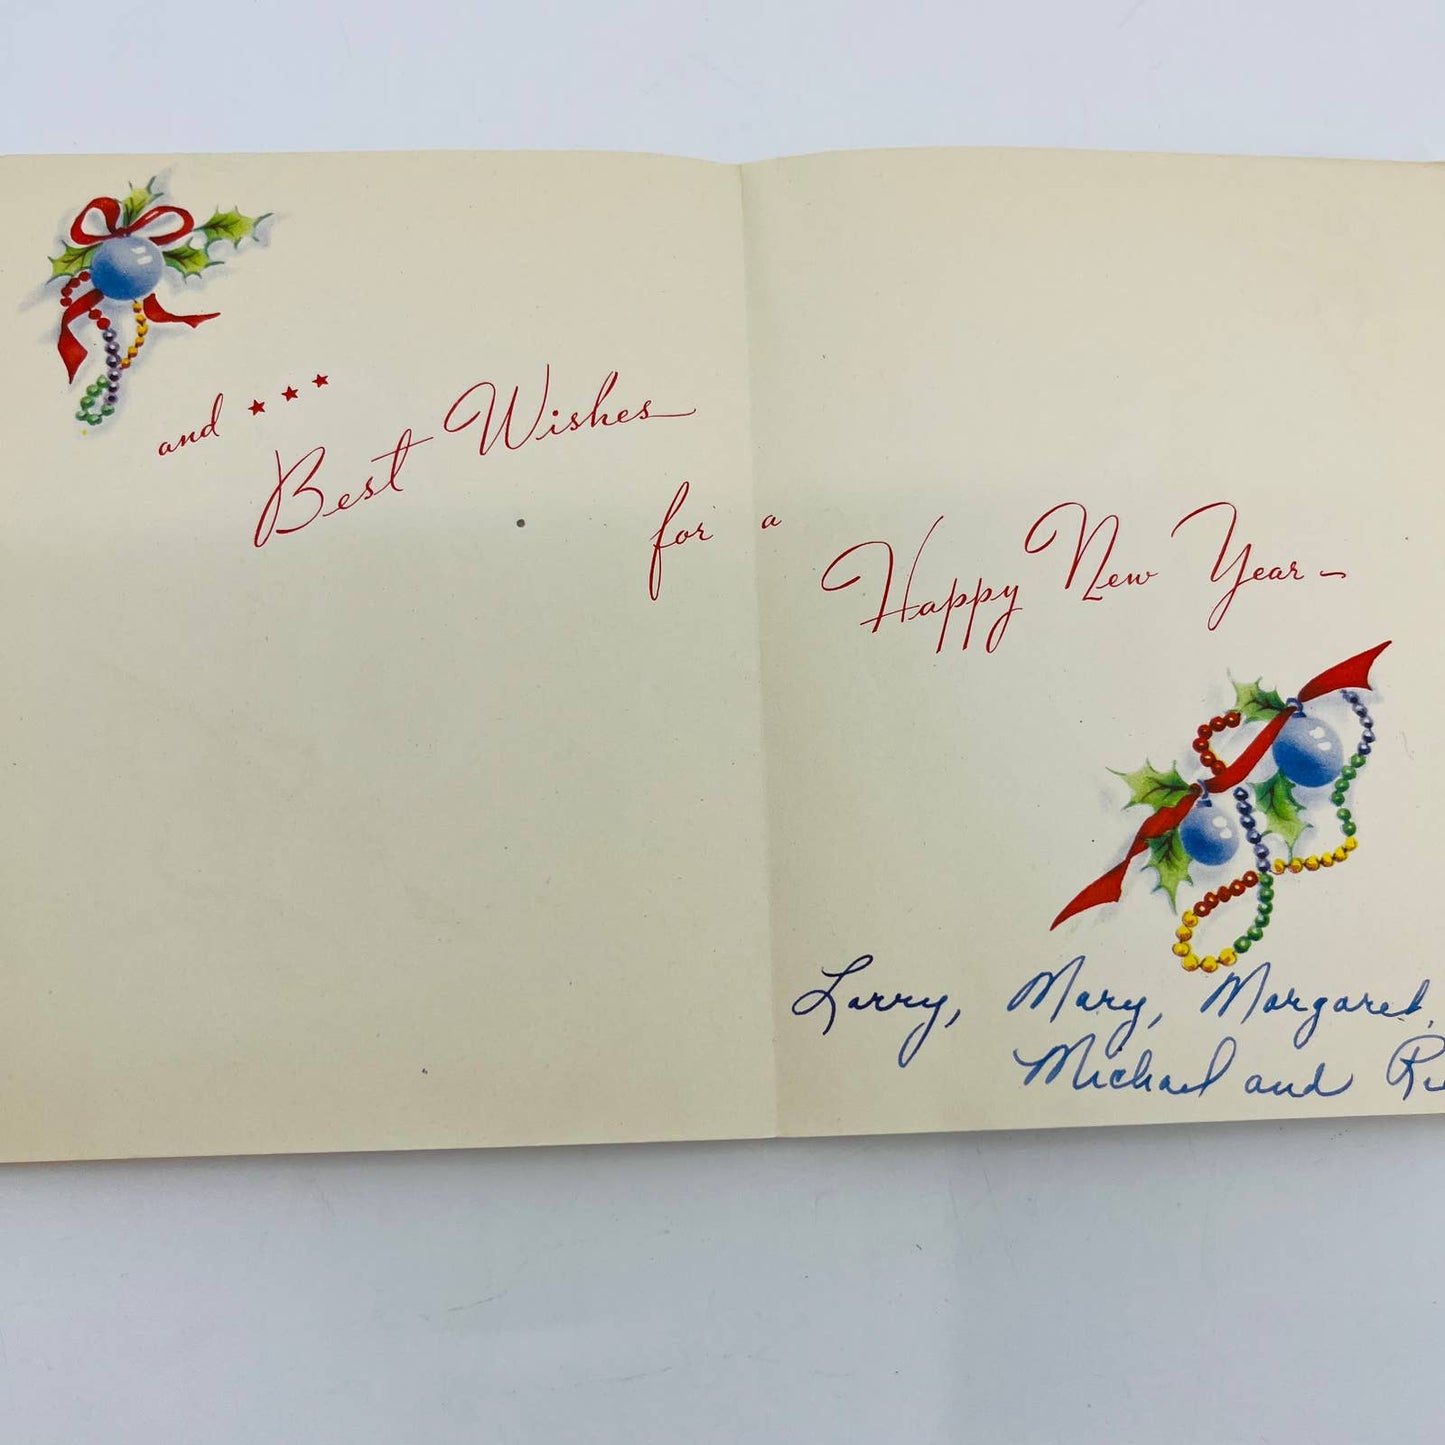 and ★ ★ ★
Best Wishes
for a
Happy New Year —
Larry, Mary, Margaret,
Michael and